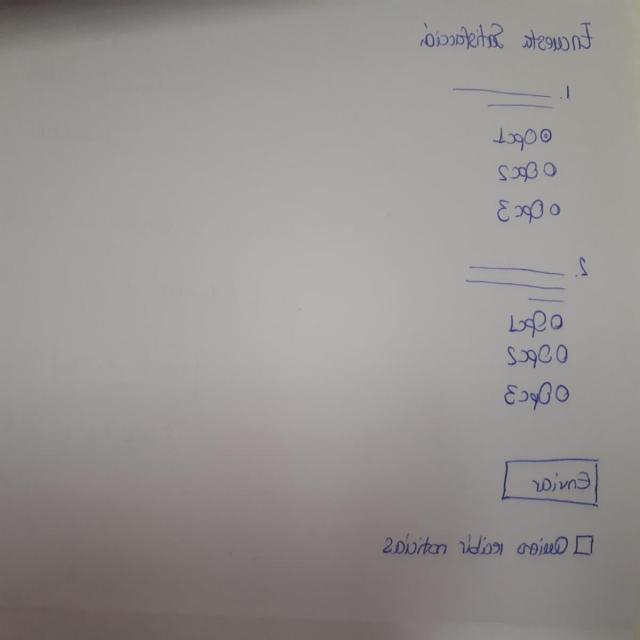 Encuesta Satisfacció.
1.
Opc1
Opc2
Opc3
2.
Opc1
Opc2
Opc3
Enviar
Quiero recibir noticias